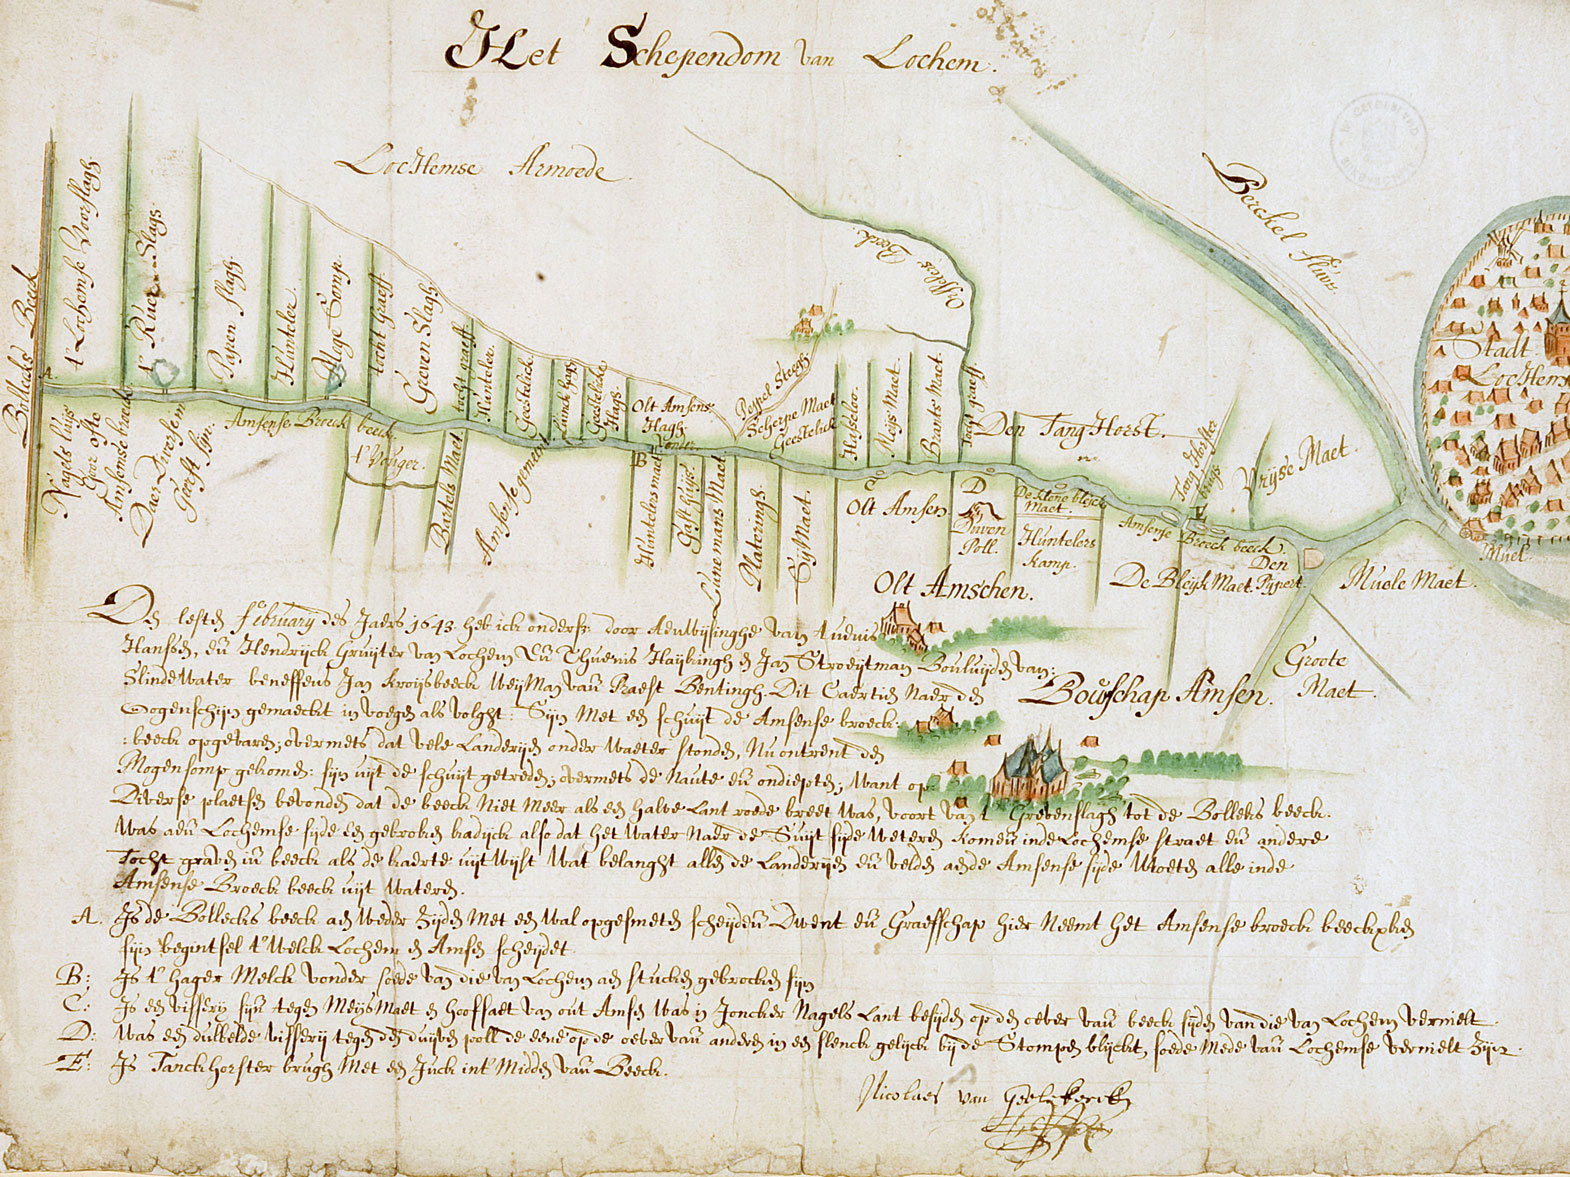 Het Schependom van Lochem.
LocHemse Armoede
Berckel fluvi.
Beeck
Stadt
LocHem
Bollecks Beeck
A.
t' Lochemse Voorslagh
t' Ruer Slagh
Papen slagh
Hunteler.
Moge Somp
tocht Graeff
Greven Slagh
tocht graeff
Hunteler.
Geestelick
Geestelicke Hagh
Olt Amsens Hagh
Peppel Steegh
Scherpe Maet
Geestelick
Hasseloo
Meijs Maet.
Brants Maet.
tocht graeff
Den Tang Horst.
Tang Horster brugh
Vrijse Maet.
Nagels
Goor ofte
Amsense broeck
Amsense Broeck beeck.
t' Venger.
Backels Maet
Amsense gemeint
B
Vonder
Huntelers maet
Gast huijs
Lunemans Maet
Plaerings.
Sij Maet.
C
Olt Amsen
D
Duven
Poll.
De klene bleick
Maet.
Huntelers
kamp.
Amsense Broeck beeck.
E
De Bleijck Maet.
Den
Pijpert.
Muele Maet.
Muel.
Groote
Maet.
Olt Amschen.
Bouschap Amsen.
Den lesten february des Jaers 1643 heb ick onders: door Aenwijsinghe van Anduis
Hanssen, en Hendrijck Gruijter van Lochem en Thuenis Haijkingh en Jan Stroeijtman Bouluijden van:
Slindewater beneffens Jan kroijsbeeck Weijman van Praest Bentingh. Dit Caertien Naer den
Oogenschijn gemaeckt in voegen als volght: Sijn Met een schuijt de Amsense broeck:
:beeck opgevaren; overmets dat vele Landerijen onder waeter stonden, Nu ontrent den
Mogensomp gekomen: sijn uijt de schuijt getreden; overmets de Naute en ondiepten; want op
Diverse plaetsen bevonden dat de beeck Niet meer als een halve Lant roede breet was, voort van t Grevenslagh tot de Bollecks beeck.
Was aen Lochemse sijde een gebroken kadijck also dat het water Naer de Suijt sijde weteren komen inde Lochemse straet en andere
Tocht graven in beeck als de kaerte uijtwijst Wat belanght allen de Landerijen en velden aende Amsense sijde Moeten alle inde
Amsense Broeck beeck uijt wateren.
A. Is de Bollecks beeck aen weder zijden Met een wal opgesmeten scheijden Twent en Graeffschap hier Neemt het Amsense broeck beeckxken
sijn begintsel t' welck Lochem en Amsen scheijdet
B: Is t' hager Melck vonder soede van die van Lochem aen stucken gebrocken sijn
C: Is een visserij sijn tegen Meijs Maet en hooffaet van out Amsen Was in Joncker Nagels Lant besijden op den oever van beeck sijden van die van Lochem vernielt
D: was een dubbelde visserij tegen den duijven poll de eene op de oever van anderen in een slenck gelijck bij de Stompen blijckt, soede Mede van Lochemse vernielt zijn.
E: Is Tanckhorster brugh Met een Juck int Midden van Beeck.
Nicolaes van Geelkerck